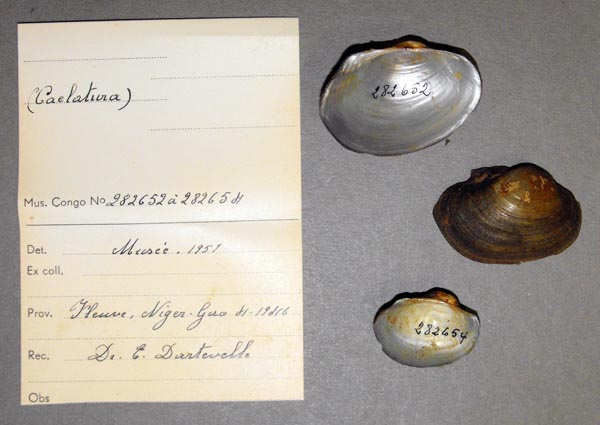 (Caelatura)
Mus. Congo No 282652 à 282654
Det. Musée, 1951
Ex coll.
Prov. Fleuve, Niger-Gao 4-1946
Rec. Dr. E. Dartevelle
Obs
282652
282654